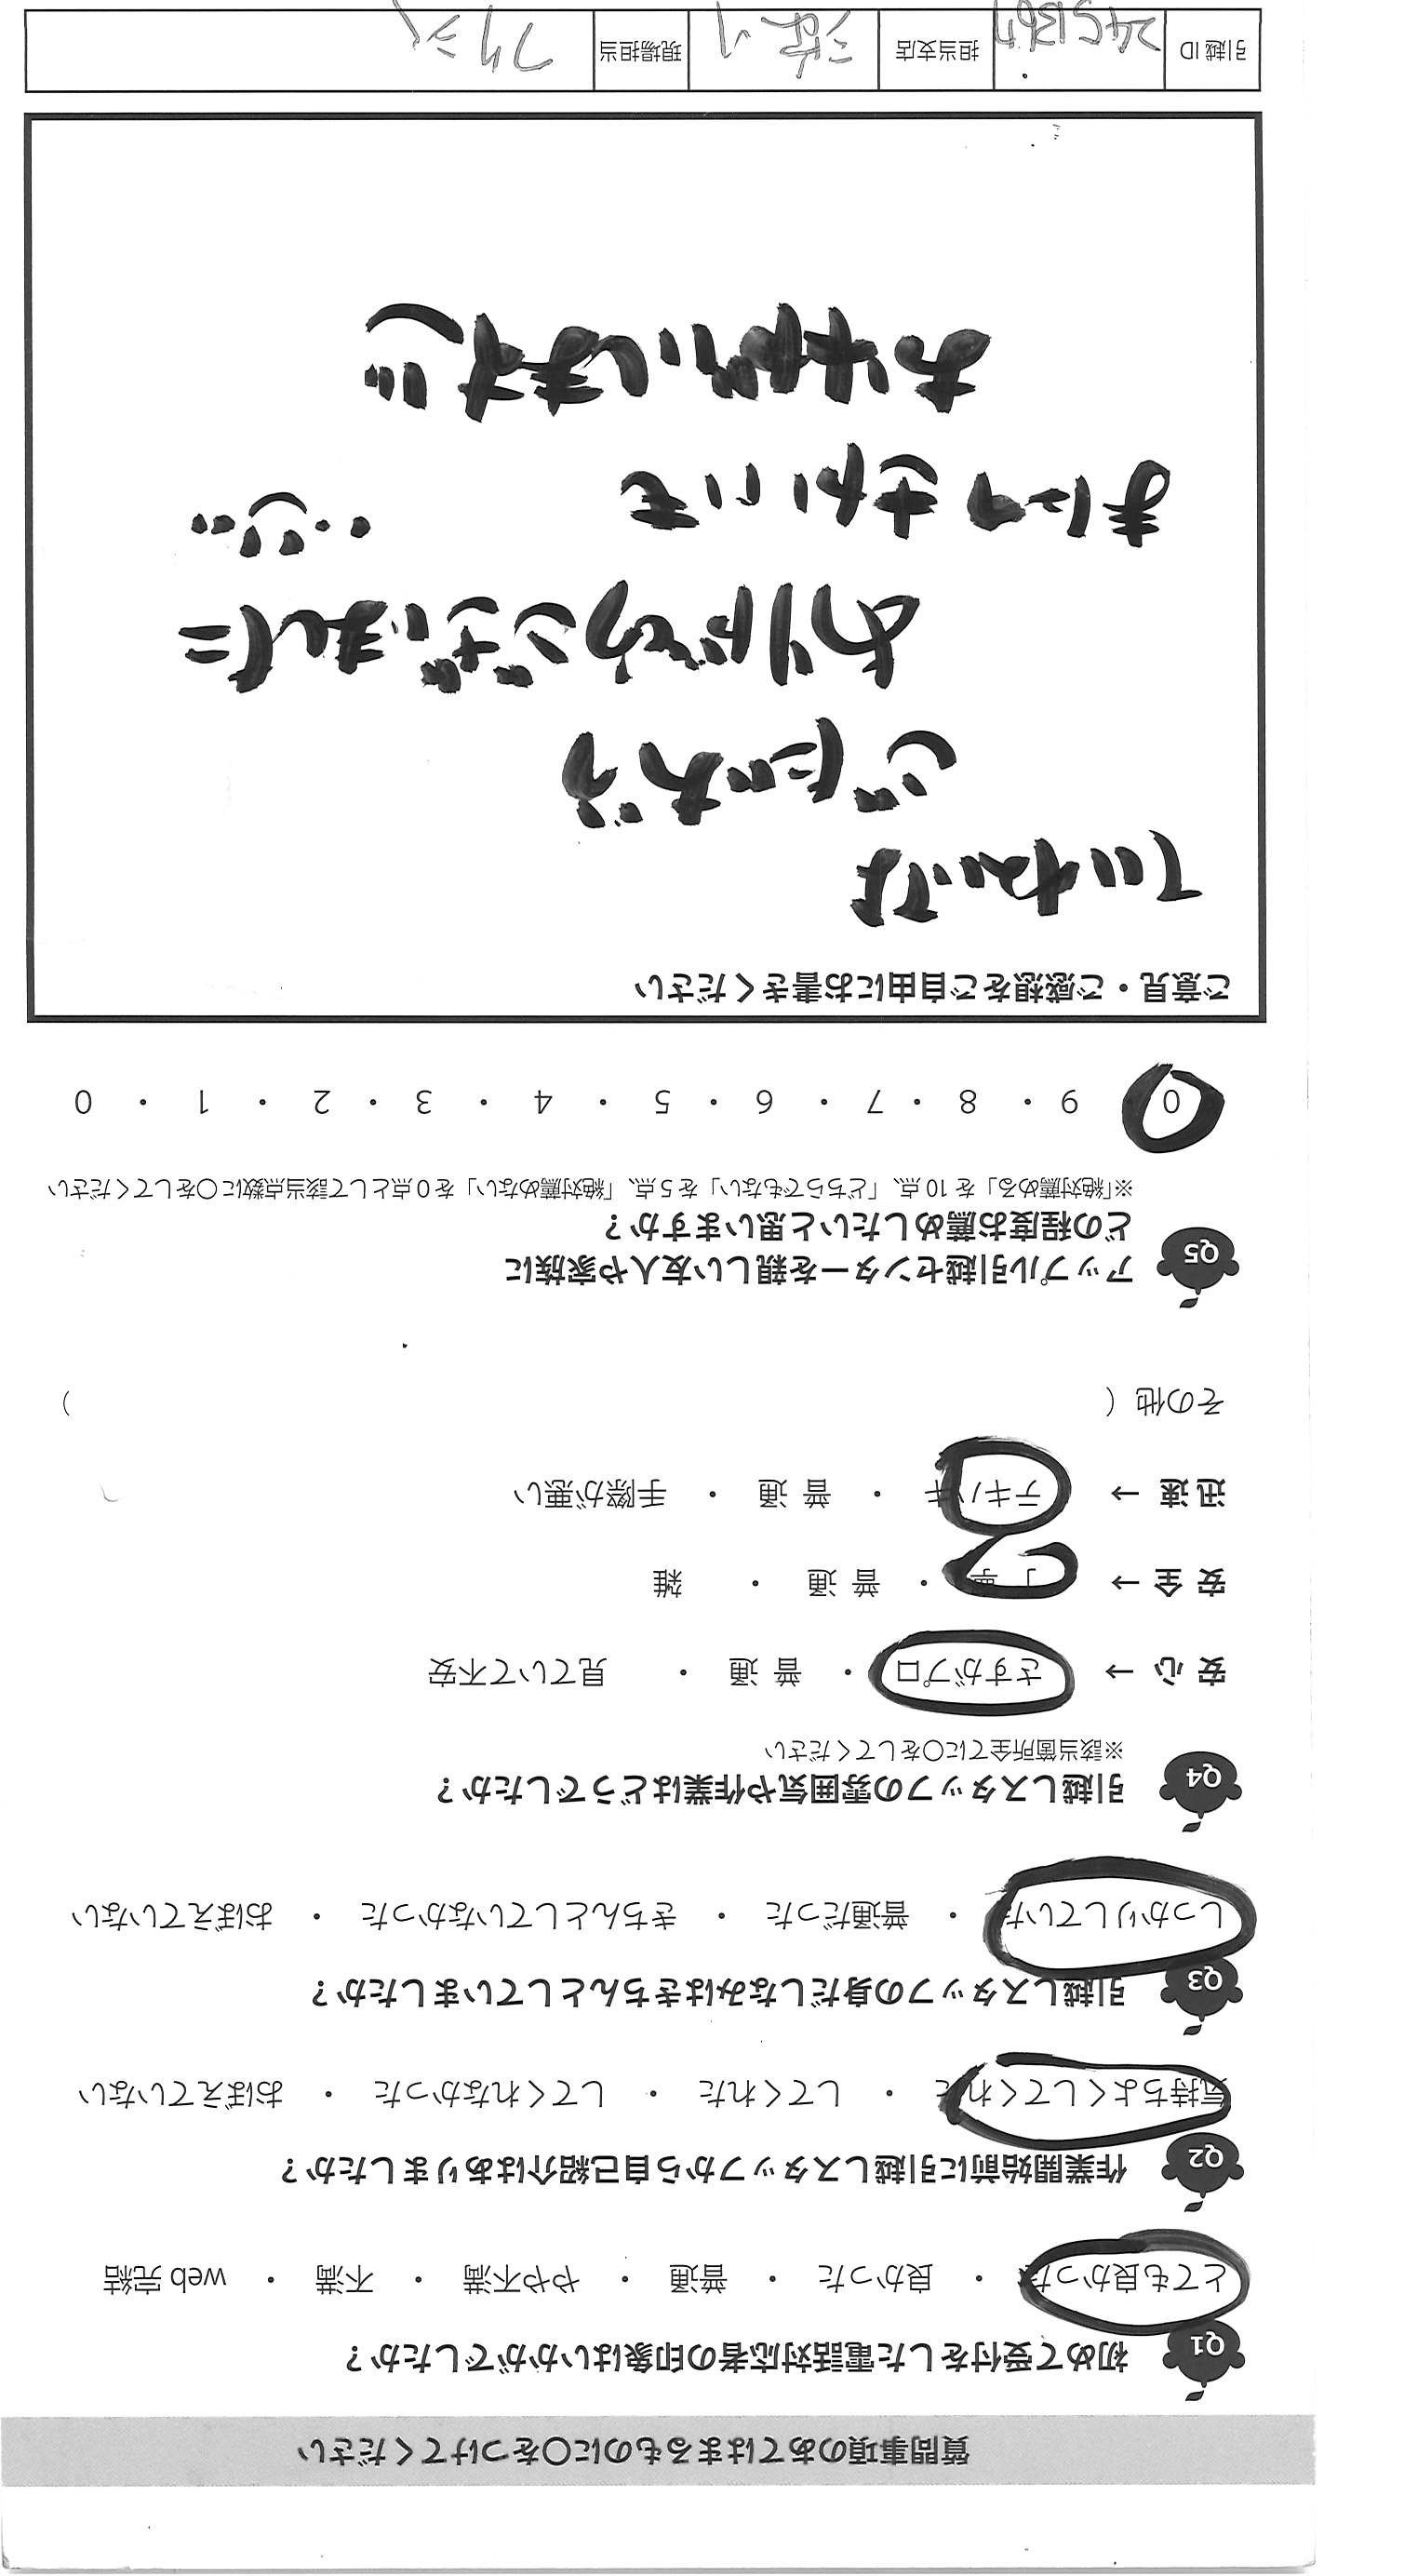 質問事項のあてはまるものに〇をつけてください
Q1 初めて受付をした電話対応者の印象はいかがでしたか？
とても良かった ・ 良かった ・ 普通 ・ やや不満 ・ 不満 ・ web 完結
Q2 作業開始前に引越しスタッフから自己紹介はありましたか？
気持ちよくしてくれた ・ してくれた ・ してくれなかった ・ おぼえていない
Q3 引越しスタッフの身だしなみはきちんとしていましたか？
しっかりしていた ・ 普通だった ・ きちんとしていなかった ・ おぼえていない
Q4 引越しスタッフの雰囲気や作業はどうでしたか？
※該当箇所全てに〇をしてください
安心 → さすがプロ ・ 普通 ・ 見ていて不安
安全 → 丁寧 ・ 普通 ・ 雑
迅速 → テキパキ ・ 普通 ・ 手際が悪い
その他（ ）
Q5 アップル引越センターを親しい友人や家族に
どの程度お薦めしたいと思いますか？
※「絶対薦める」を 10 点、「どちらでもない」を 5 点、「絶対薦めない」を 0 点として該当点数に〇をしてください
0 9 ・ 8 ・ 7 ・ 6 ・ 5 ・ 4 ・ 3 ・ 2 ・ 1 ・ 0
ご意見・ご感想をご自由にお書きください
ていねいな
ごたいおう
ありがとうございました
またつきかいも
おねがいします!!!
引越 ID 担当支店 現場担当